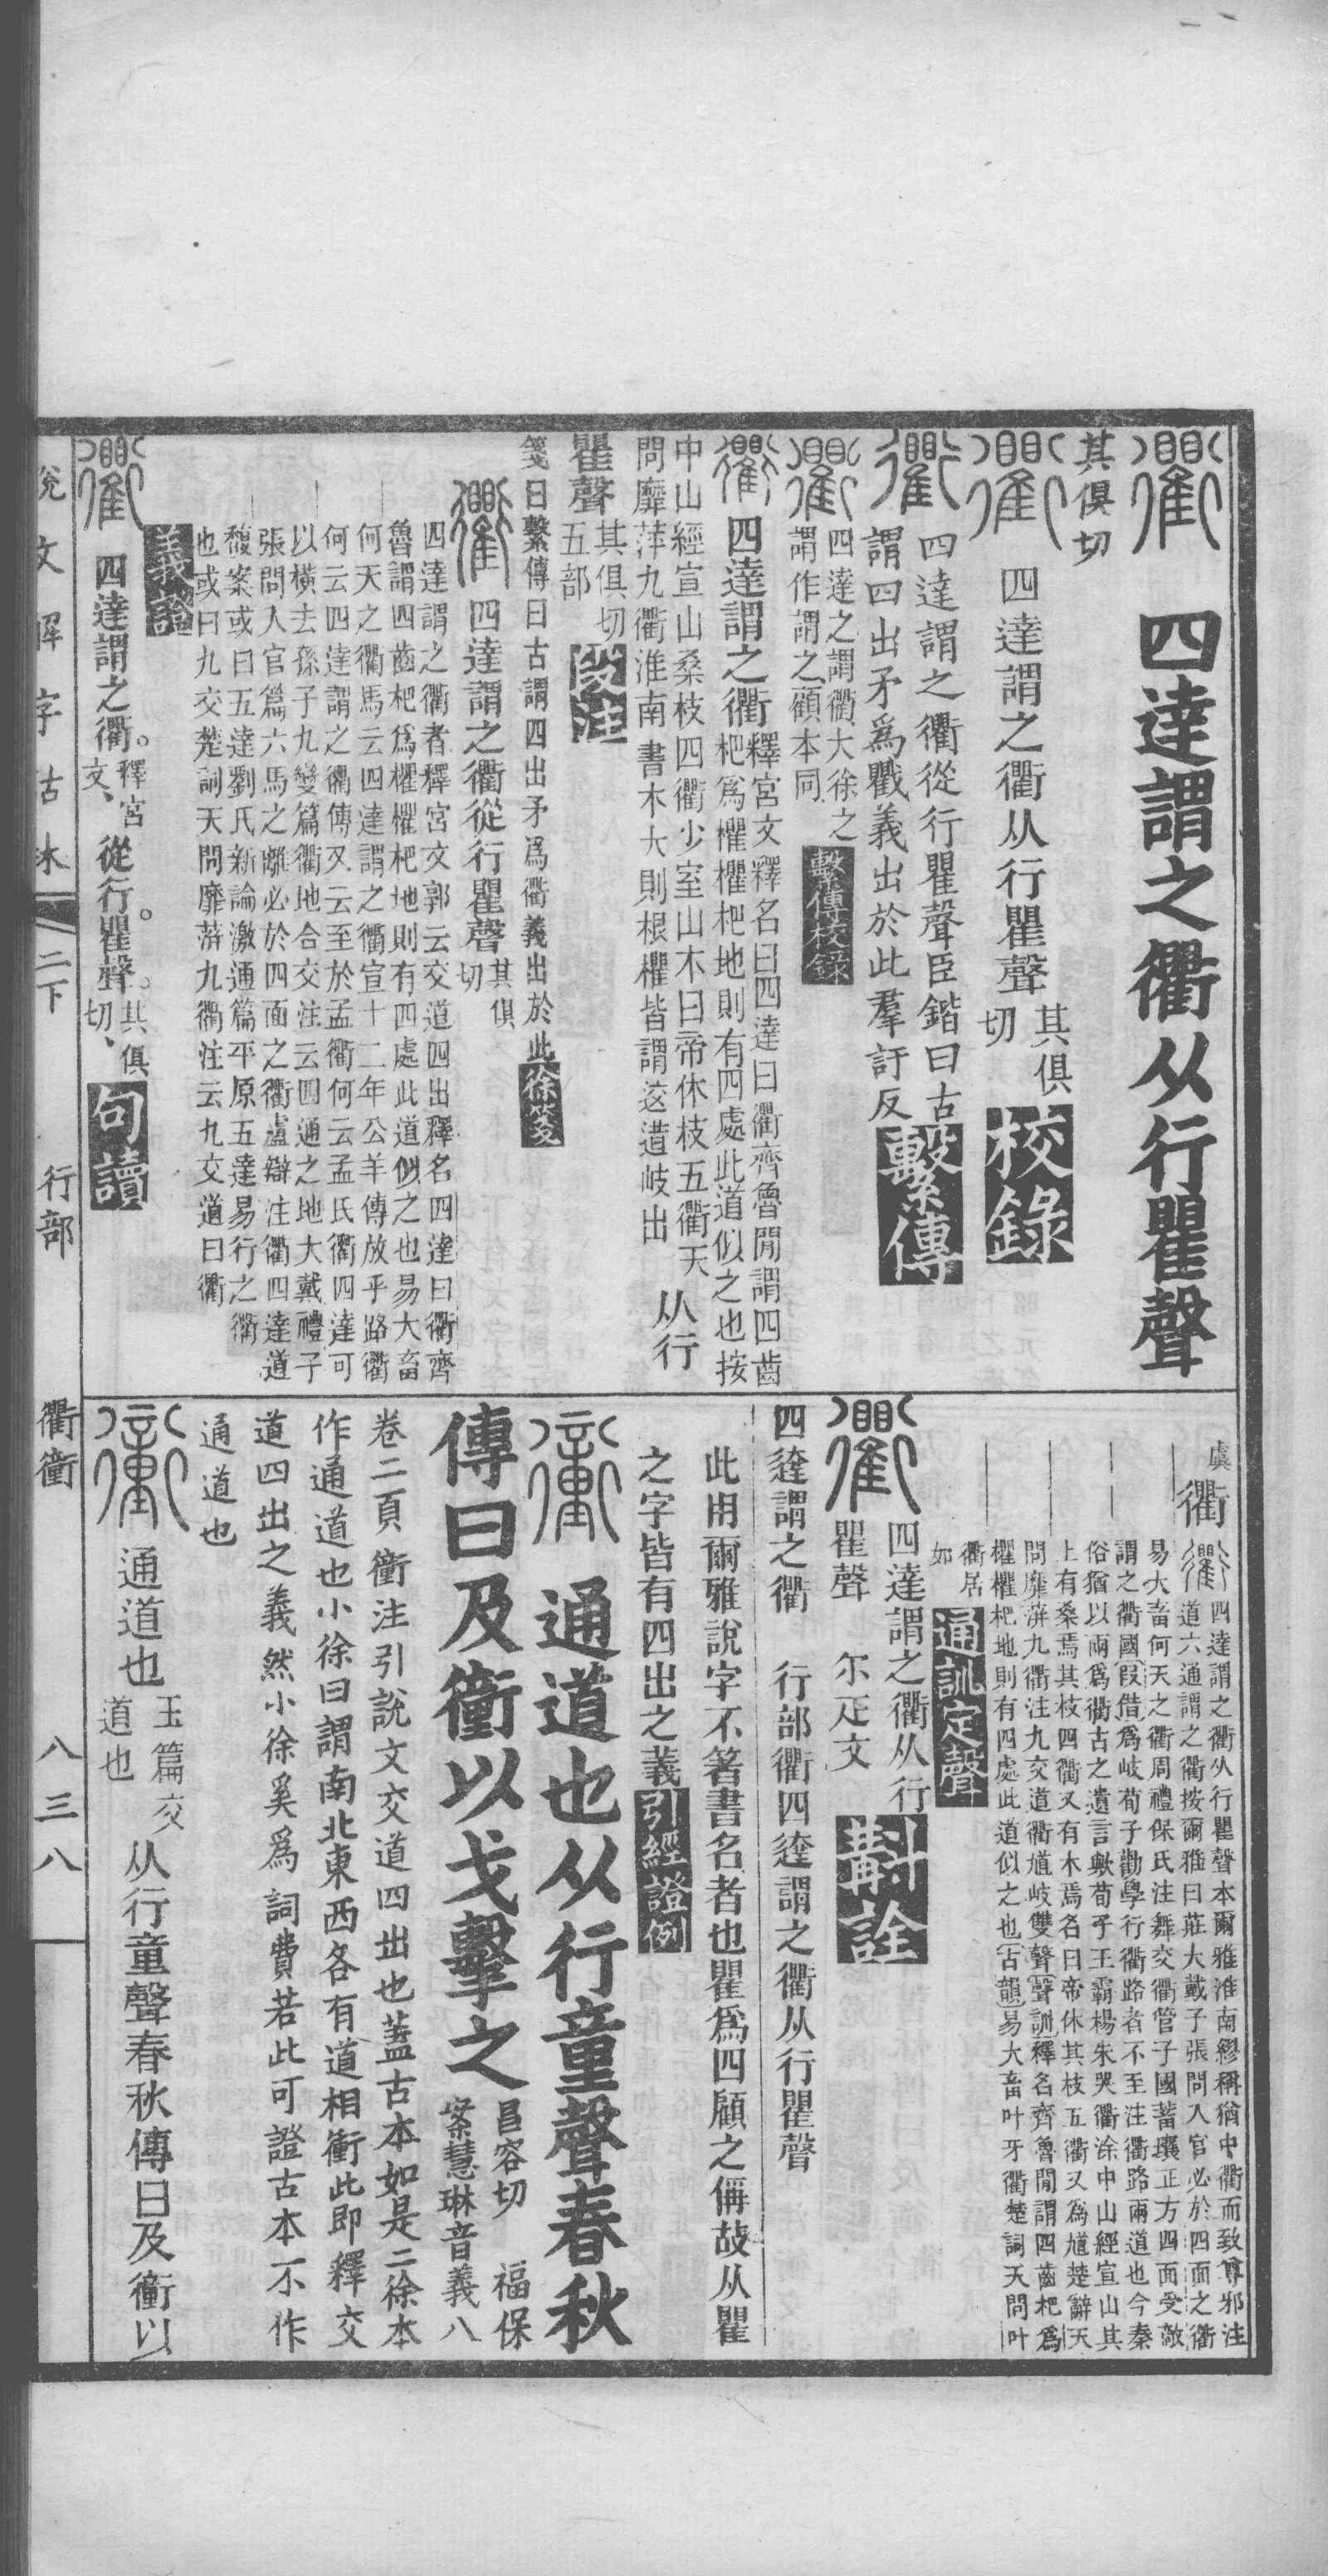 衢 四達謂之衢从行瞿聲
其俱切
衢 四達謂之衢从行瞿聲 其俱切 校錄
衢 四達謂之衢從行瞿聲臣鍇曰古
謂四出矛爲戵義出於此羣訏反 繫傳
衢 四達之謂衢大徐之
謂作謂之顧本同 繫傳校錄
衢 四達謂之衢 釋宮文釋名曰四達曰衢齊魯閒謂四齒
杷爲欋欋杷地則有四處此道似之也按
中山經宣山桑枝四衢少室山木曰帝休枝五衢天
問靡蓱九衢淮南書木大則根欋皆謂迻道岐出 从行
瞿聲 其俱切
五部 段注
箋曰繫傳曰古謂四出矛爲衢義出於此 徐箋
衢 四達謂之衢從行瞿聲 其俱切
四達謂之衢者釋宮文郭云交道四出釋名四達曰衢齊
魯謂四齒杷爲欋欋杷地則有四處此道似之也易大畜
何天之衢馬云四達謂之衢宣十二年公羊傳放乎路衢
何云四達謂之衢傳又云至於孟衢何云孟氏衢四達可
以橫去孫子九變篇衢地合交注云四通之地大戴禮子
張問入官篇六馬之離必於四面之衢盧辯注衢四達道
馥案或曰五達劉氏新論激通篇平原五達易行之衢
也或曰九交楚詞天問靡蓱九衢注云九交道曰衢
義證
衢 四達謂之衢。釋宮文、從行。瞿聲。其俱切、 句讀
說文解字詁林 二下 行部 衢衝 八三八
虞
衢 衢 四達謂之衢从行瞿聲本爾雅淮南繆稱猶中衢而致尊邪注
道六通謂之衢按爾雅曰莊大戴子張問入官必於四面之衢
易大畜何天之衢周禮保氏注舞交衢管子國蓄壤正方四面受敵
謂之衢國叚借爲岐荀子勸學行衢路者不至注衢路兩道也今秦
俗猶以兩爲衢古之遺言歟荀子王霸楊朱哭衢涂中山經宣山其
上有桑焉其枝四衢又有木焉名曰帝休其枝五衢又爲馗楚辭天
問靡蓱九衢注九交道衢馗岐雙聲聲訓釋名齊魯閒謂四齒杷爲
欋欋杷地則有四處此道似之也古韻易大畜叶牙衢楚詞天問叶
衢居
如 通訓定聲
衢 四達謂之衢从行
瞿聲 尒疋文 斠詮
四達謂之衢 行部衢四達謂之衢从行瞿聲
此用爾雅說字不箸書名者也瞿爲四顧之偁故从瞿
之字皆有四出之義 引經證例
衝 通道也从行童聲春秋
傳曰及衝以戈擊之 昌容切 福保
案慧琳音義八
卷二頁衝注引說文交道四出也蓋古本如是二徐本
作通道也小徐曰謂南北東西各有道相衝此即釋交
道四出之義然小徐奚爲詞費若此可證古本不作
通道也
衝 通道也 玉篇交
道也 从行童聲春秋傳曰及衝以